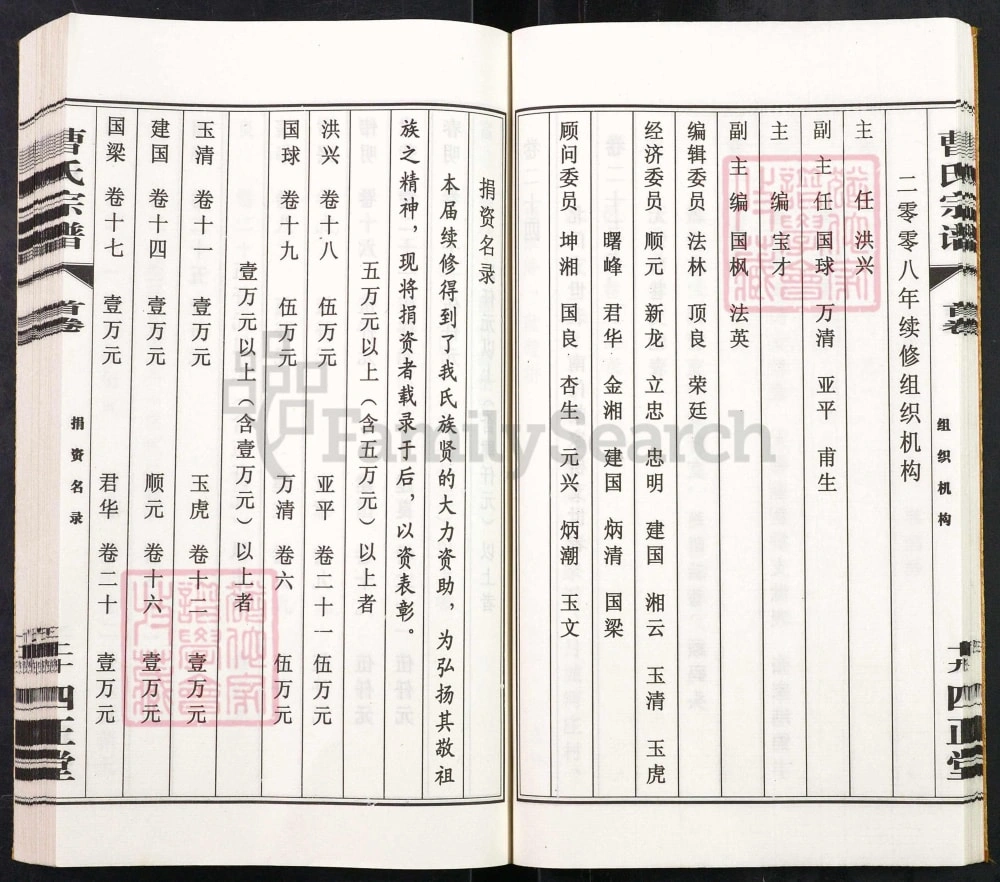 曹氏宗谱
首卷
组织机构
十九
四正堂
二零零八年续修组织机构
主任 洪兴
副主任 国球 万清 亚平 甫生
主编 宝才
副主编 国枫 法英
编辑委员 法林 顶良 荣廷
经济委员 顺元 新龙 立忠 忠明 建国 湘云 玉清 玉虎
曙峰 君华 金湘 建国 炳清 国梁
顾问委员 坤湘 国良 杏生 元兴 炳潮 玉文
捐资名录
本届续修得到了我氏族贤的大力资助，为弘扬其敬祖
族之精神，现将捐资者载录于后，以资表彰。
五万元以上（含五万元）以上者
洪兴 卷十八 伍万元 亚平 卷二十一 伍万元
国球 卷十九 伍万元 万清 卷六 伍万元
壹万元以上（含壹万元）以上者
玉清 卷十一 壹万元 玉虎 卷十二 壹万元
建国 卷十四 壹万元 顺元 卷十六 壹万元
国梁 卷十七 壹万元 君华 卷二十 壹万元
曹氏宗谱
首卷
捐资名录
二十
四正堂
FamilySearch